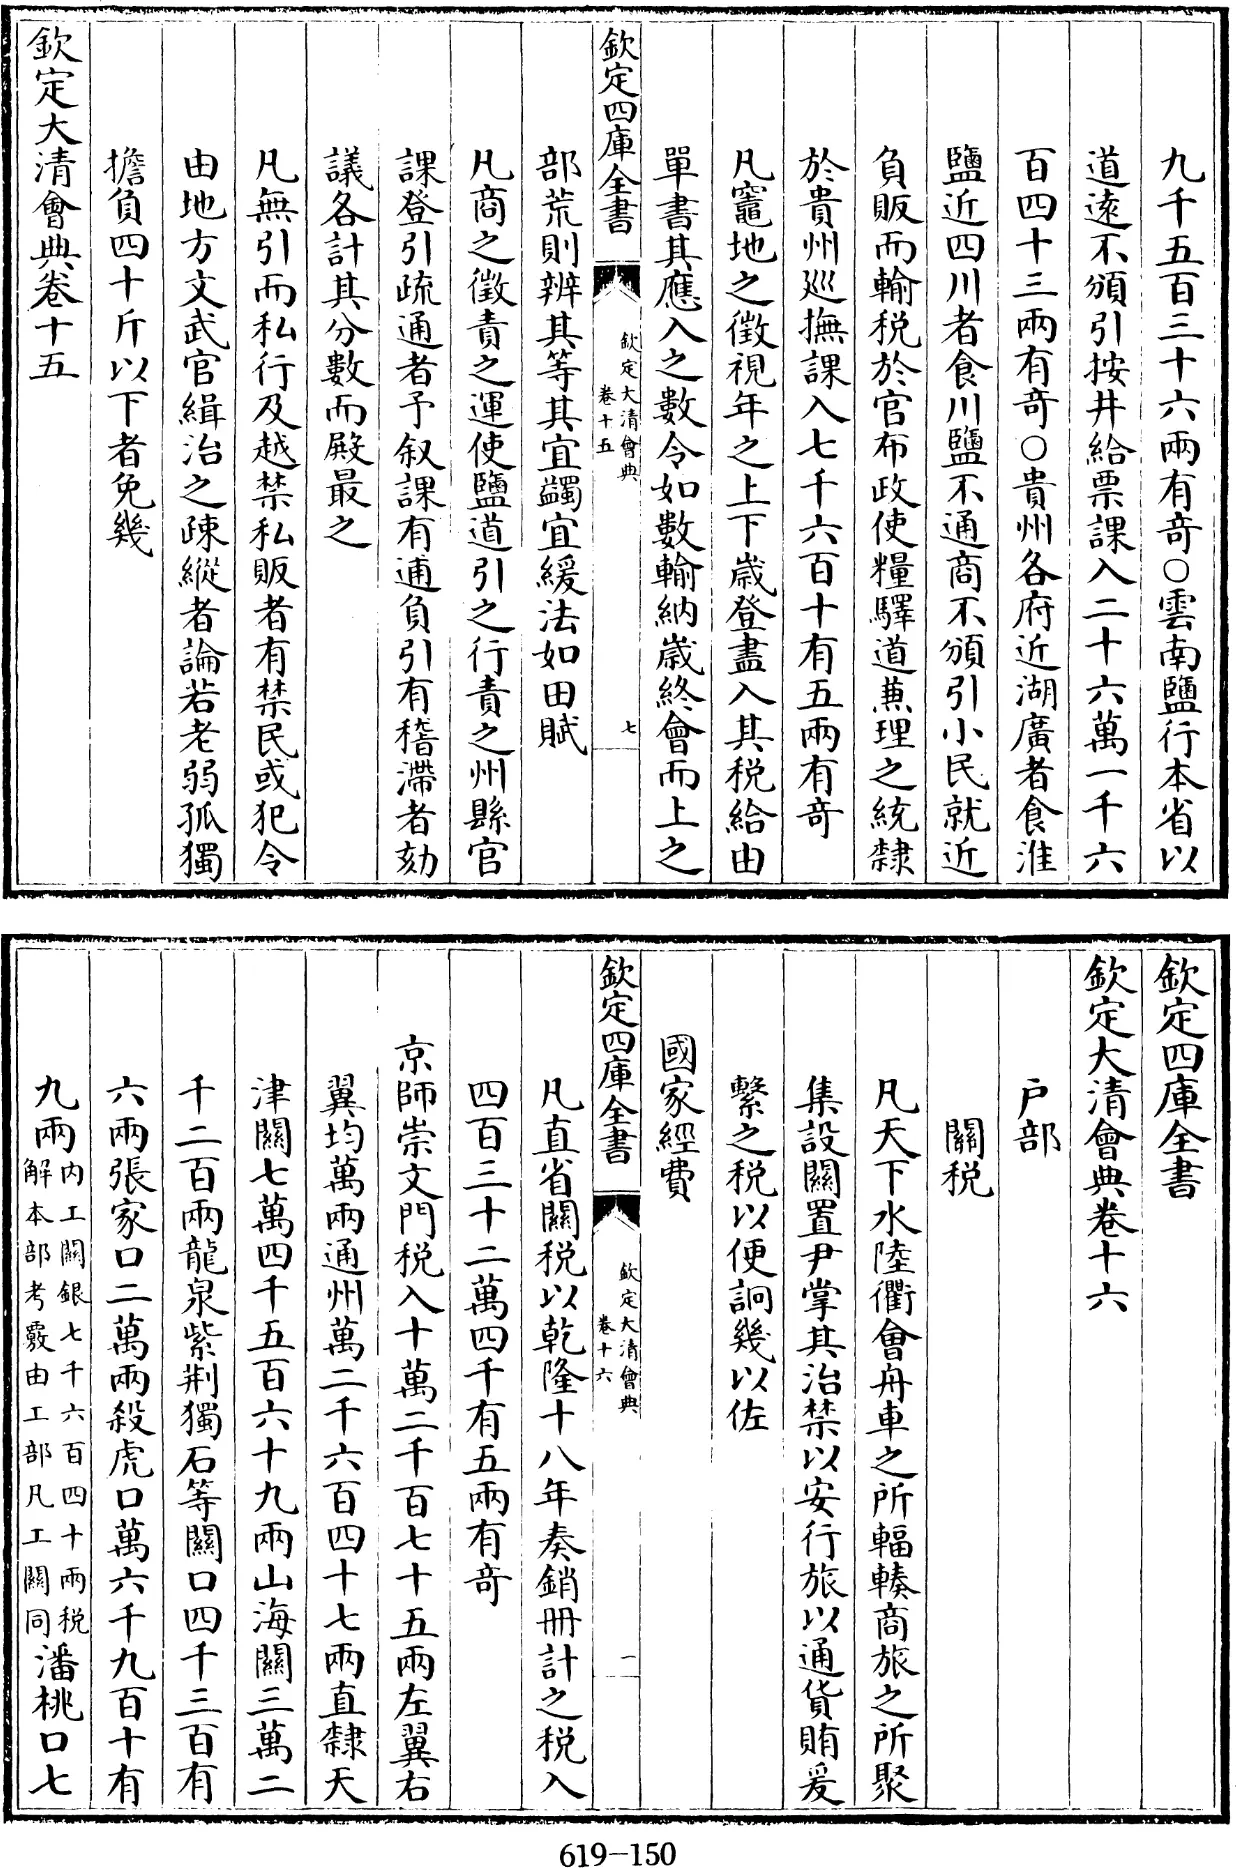 九千五百三十六兩有奇○雲南鹽行本省以
道逺不頒引按井給票課入二十六萬一千六
百四十三兩有奇○貴州各府近湖廣者食淮
鹽近四川者食川鹽不通商不頒引小民就近
負販而輸税於官布政使糧驛道兼理之統隸
於貴州巡撫課入七千六百十有五兩有奇
凡竈地之徵視年之上下嵗登盡入其税給由
單書其應入之數令如數輸納嵗終會而上之
欽定四庫全書
欽定大清會典
卷十五
七
部荒則辨其等其宜蠲宜緩法如田賦
凡商之徵責之運使鹽道引之行責之州縣官
課登引疏通者予叙課有逋負引有稽滯者劾
議各計其分數而殿最之
凡無引而私行及越禁私販者有禁民或犯令
由地方文武官緝治之疎縱者論若老弱孤獨
擔負四十斤以下者免幾
欽定大清會典卷十五
欽定四庫全書
欽定大清會典卷十六
户部
關税
凡天下水陸衢會舟車之所輻輳商旅之所聚
集設關置尹掌其治禁以安行旅以通貨賄爰
繫之税以便詗幾以佐
國家經費
欽定四庫全書
欽定大清會典
卷十六
一
凡直省關税以乾隆十八年奏銷冊計之税入
四百三十二萬四千有五兩有奇
京師崇文門税入十萬二千百七十五兩左翼右
翼均萬兩通州萬二千六百四十七兩直隸天
津關七萬四千五百六十九兩山海關三萬二
千二百兩龍泉紫荆獨石等關口四千三百有
六兩張家口二萬兩殺虎口萬六千九百十有
九兩内工關銀七千六百四十兩税解本部考覈由工部凡工關同潘桃口七
619-150